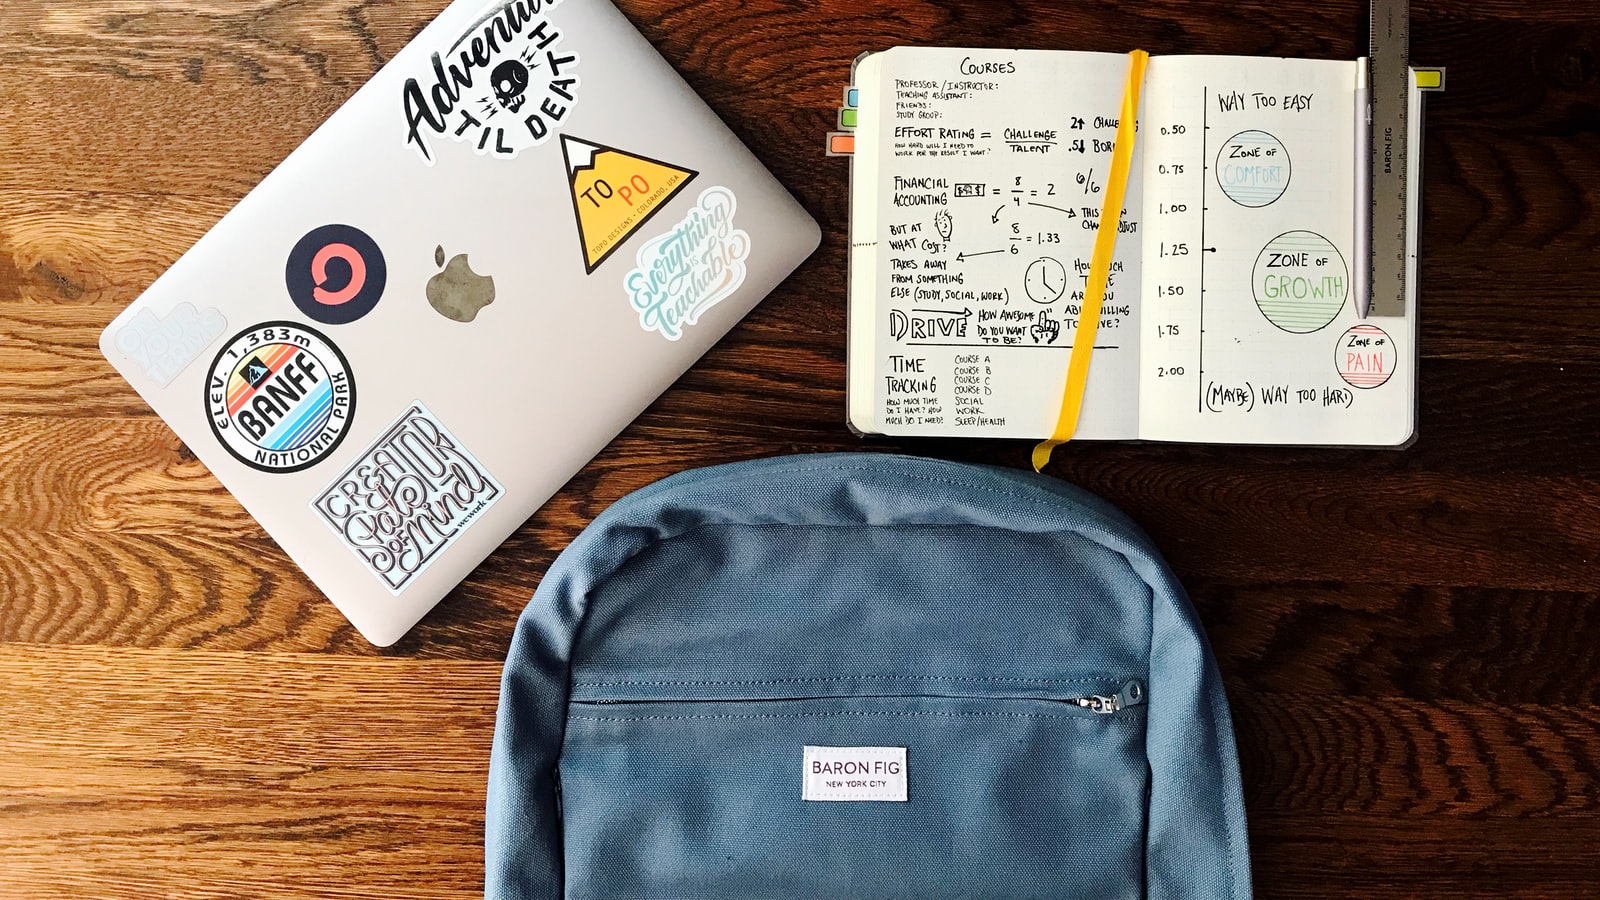 Adventure
'TIL DEATH
TO
PO
TOPO DESIGNS • COLORADO, USA
Everything
is
Teachable
ELEV. 1,383m
BANFF
NATIONAL PARK
CREATOR
State
OF Mind
wework
COURSES
PROFESSOR / INSTRUCTOR:
TEACHING ASSISTANT:
FRIENDS:
STUDY GROUP:
EFFORT RATING = CHALLENGE
TALENT
HOW HARD WILL I NEED TO
WORK FOR THE RESULT I WANT?
2↑
.5↓
FINANCIAL
ACCOUNTING
= 8/4 = 2
6/6
8/6 = 1.33
BUT AT
WHAT COST?
TAKES AWAY
FROM SOMETHING
ELSE (STUDY, SOCIAL, WORK)
DRIVE
HOW AWESOME
DO YOU WANT
TO BE?
TIME
TRACKING
HOW MUCH TIME
DO I HAVE? HOW
MUCH DO I NEED?
COURSE A
COURSE B
COURSE C
COURSE D
SOCIAL
WORK
SLEEP/HEALTH
WAY TOO EASY
0.50
0.75
1.00
1.25
1.50
1.75
2.00
ZONE OF
COMFORT
ZONE OF
GROWTH
ZONE OF
PAIN
(MAYBE) WAY TOO HARD
BARON FIG
BARON FIG
NEW YORK CITY